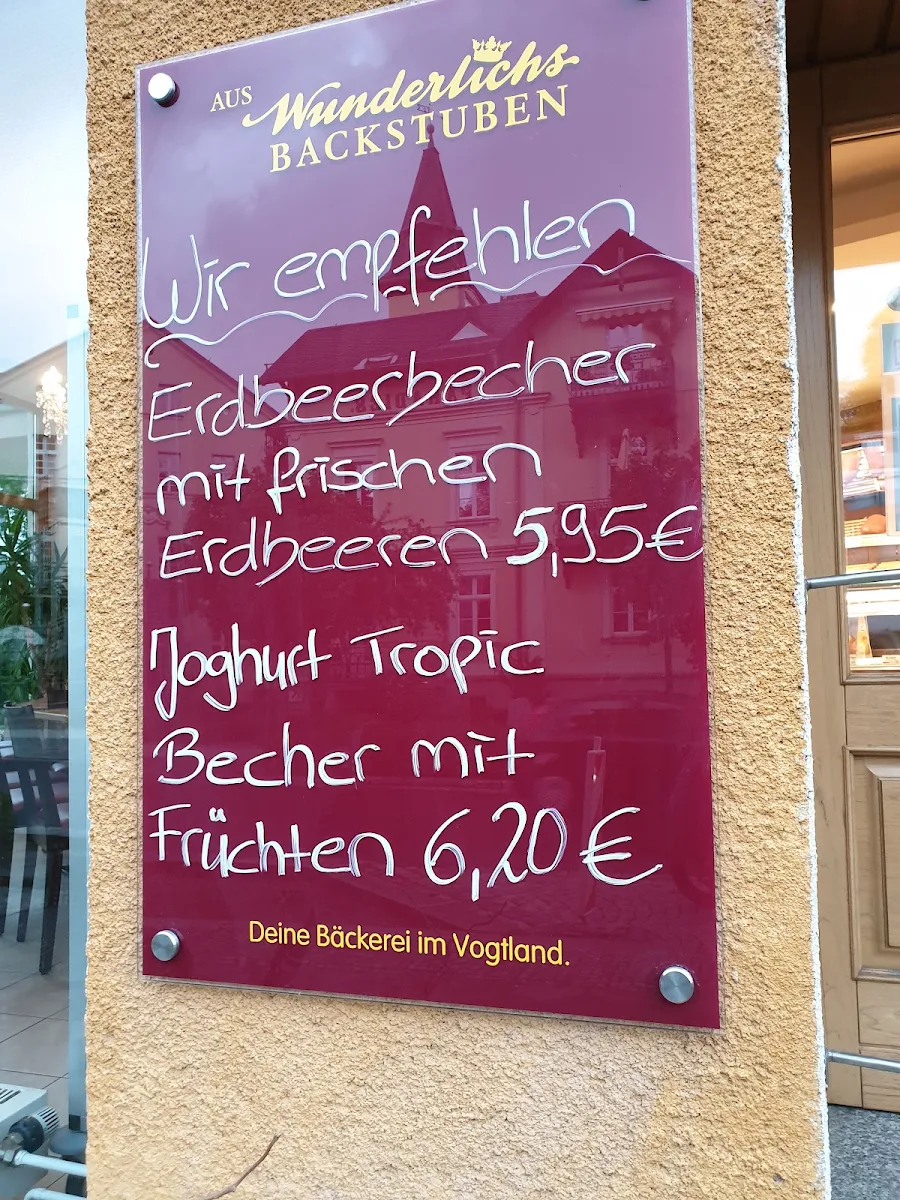 AUS Wunderlichs
BACKSTUBEN
Wir empfehlen
Erdbeerbecher
mit frischen
Erdbeeren 5,95€
Joghurt Tropic
Becher mit
Früchten 6,20 €
Deine Bäckerei im Vogtland.